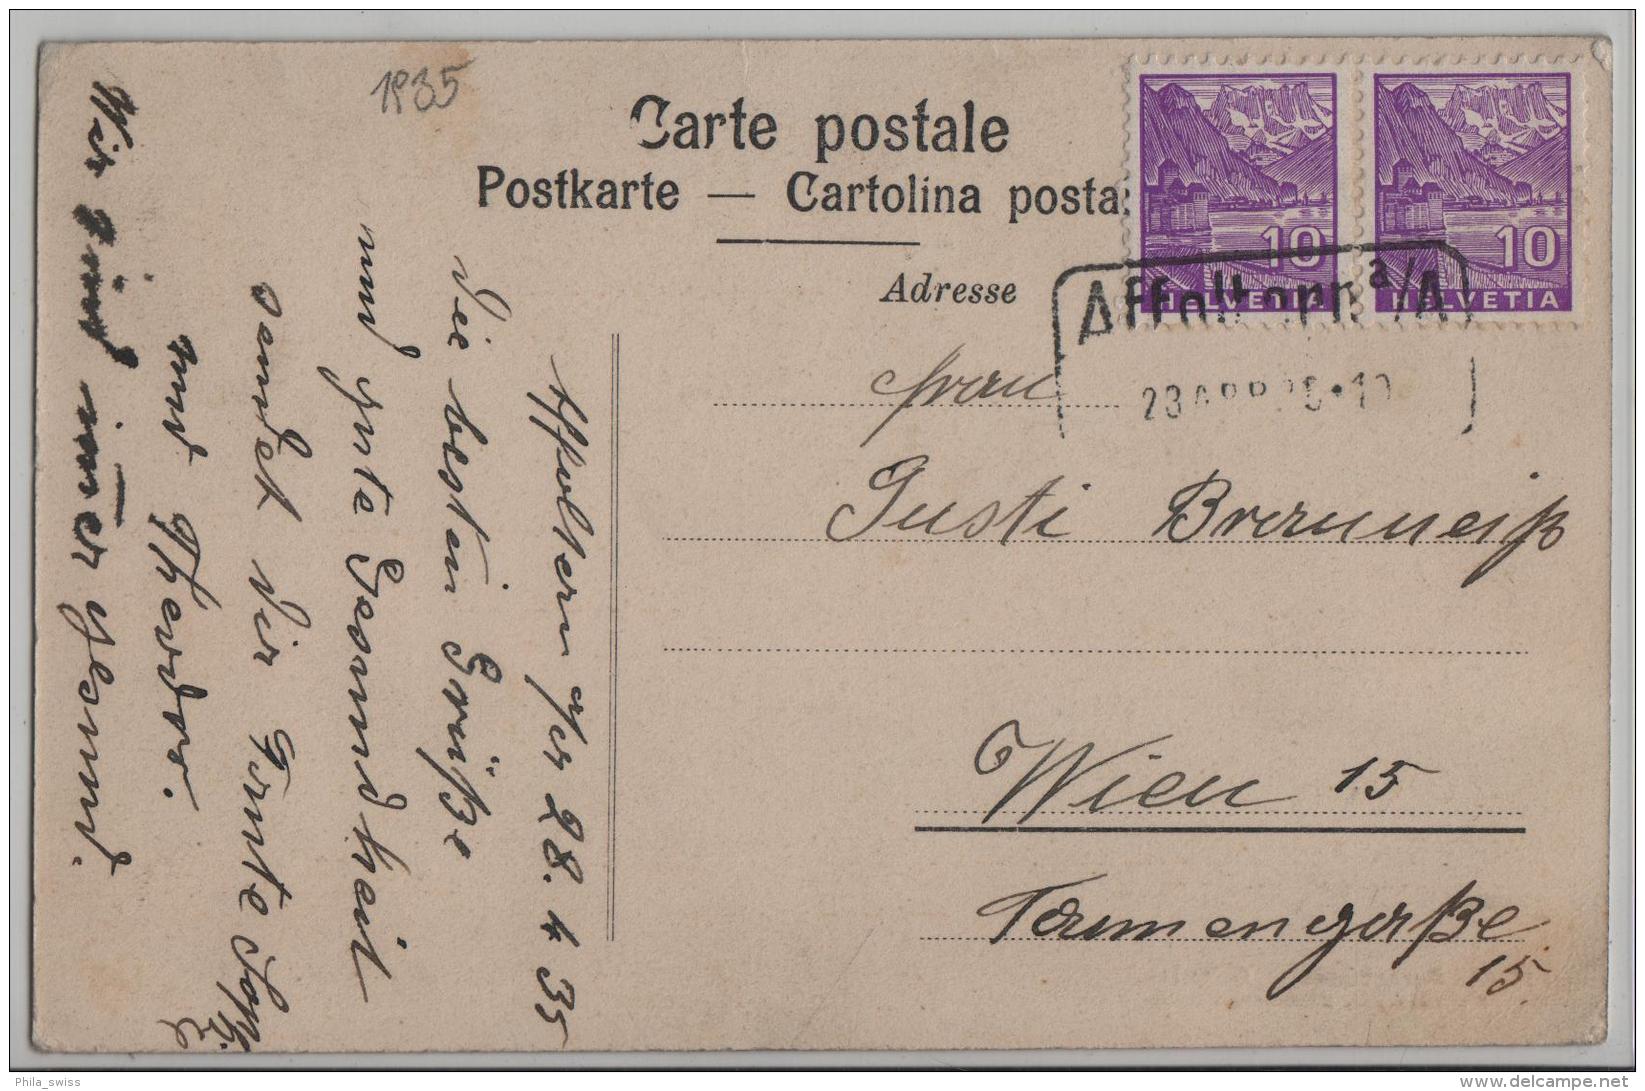 1935
Carte postale
Postkarte — Cartolina posta
Adresse
HELVETIA 10
HELVETIA 10
Affoltern a/A
28 APR 35·10
Frau
Gusti Brauneiß
Wien 15
Tannengaße
15.
Affoltern 28. 4 35
die besten Grüße
und gute Gesundheit
sendet dir Tante Sophie
und Theodor.
Wir sind im̅er gesund.
Phila_swiss
www.delcampe.net